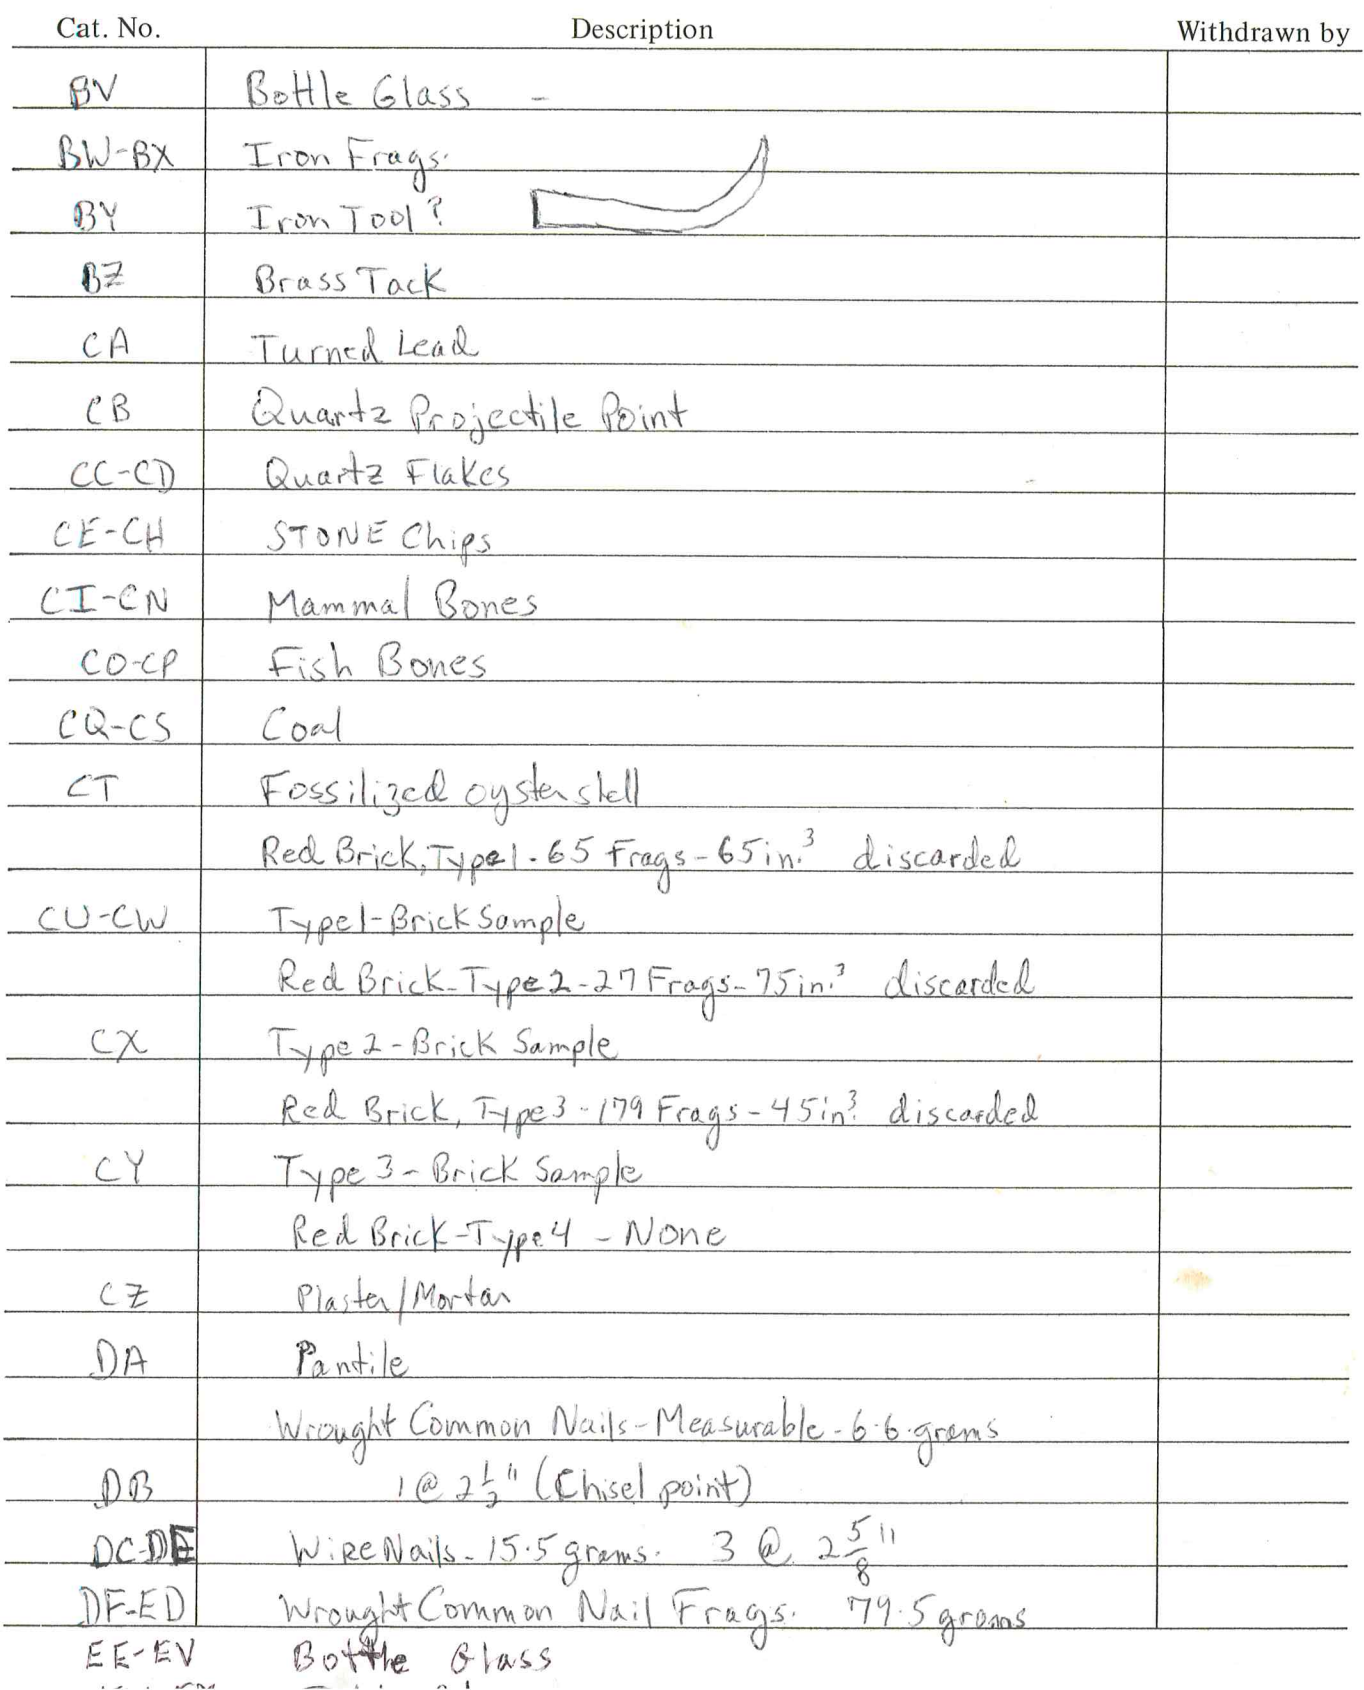 Cat. No. Description Withdrawn by
BV Bottle Glass -
BW-BX Iron Frags.
BY Iron Tool?
BZ Brass Tack
CA Turned Lead
CB Quartz Projectile Point
CC-CD Quartz Flakes
CE-CH STONE Chips
CI-CN Mammal Bones
CO-CP Fish Bones
CQ-CS Coal
CT Fossilized oyster shell
Red Brick, Type 1 - 65 Frags - 65 in.³ discarded
CU-CW Type 1 - Brick Sample
Red Brick - Type 2 - 27 Frags - 75 in.³ discarded
CX Type 2 - Brick Sample
Red Brick, Type 3 - 179 Frags - 45 in.³ discarded
CY Type 3 - Brick Sample
Red Brick - Type 4 - None
CZ Plaster/Mortar
DA Pantile
Wrought Common Nails - Measurable - 6.6 grams
DB 1 @ 2 1/2" (Chisel point)
DC-DE Wire Nails - 15.5 grams. 3 @ 2 5/8"
DF-ED Wrought Common Nail Frags. 79.5 grams
EE-EV Bottle Glass